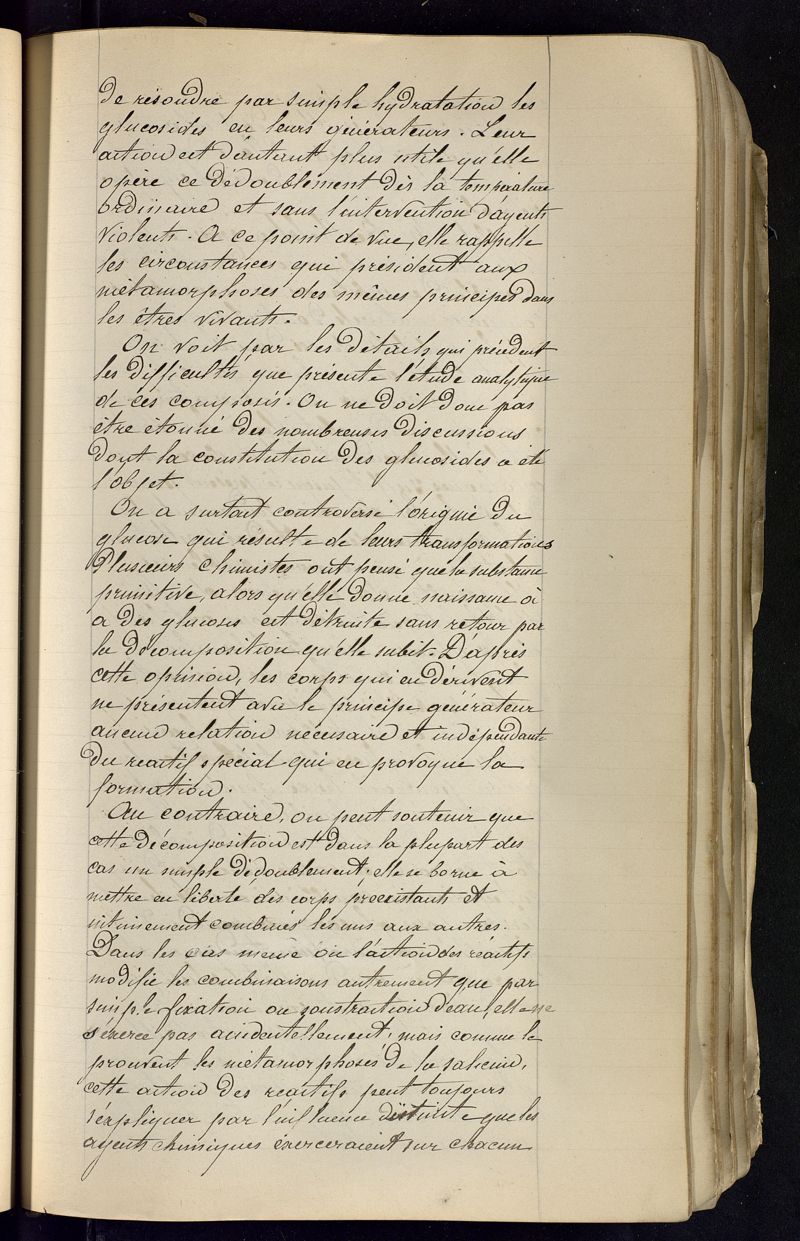 de résoudre par simple hydratation les
glucosides en leurs générateurs. Leur
action est d'autant plus utile qu'elle
opère ce dédoublement dès la température
ordinaire et sans l'intervention d'agents
violents. A ce point de vue, elle rappelle
les circonstances qui président aux
métamorphoses des mêmes principes dans
les êtres vivants.
On voit par les détails qui précèdent
les difficultés que présente l'étude analytique
de ces composés. On ne doit donc pas
être étonné des nombreuses discussions
dont la constitution des glucosides a été
l'objet.
On a surtout controversé l'origine du
glucose qui résulte de leurs transformations
Plusieurs chimistes ont pensé que la substance
primitive, alors qu'elle donne naissance à
a des glucoses est détruite sans retour par
la décomposition qu'elle subit. D'après
cette opinion, les corps qui en dérivent
ne présentent avec le principe générateur
aucune relation nécessaire et indépendante
du reactif spécial qui en provoque la
formation.
Au contraire, on peut soutenir que
cette décomposition est dans la plupart des
cas un simple dédoublement; elle se borne à
mettre en liberté des corps préexistants et
intimement combinés les uns aux autres.
Dans les cas même où l'action des réactifs
modifie les combinaisons autrement que par
simple fixation ou soustraction d'eau, elle ne
s'exerce pas accidentellement; mais comme le
prouvent les métamorphoses de la salicine,
cette action des reactifs peut toujours
s'expliquer par l'influence distincte que les
agents chimiques exerceraient sur chacun